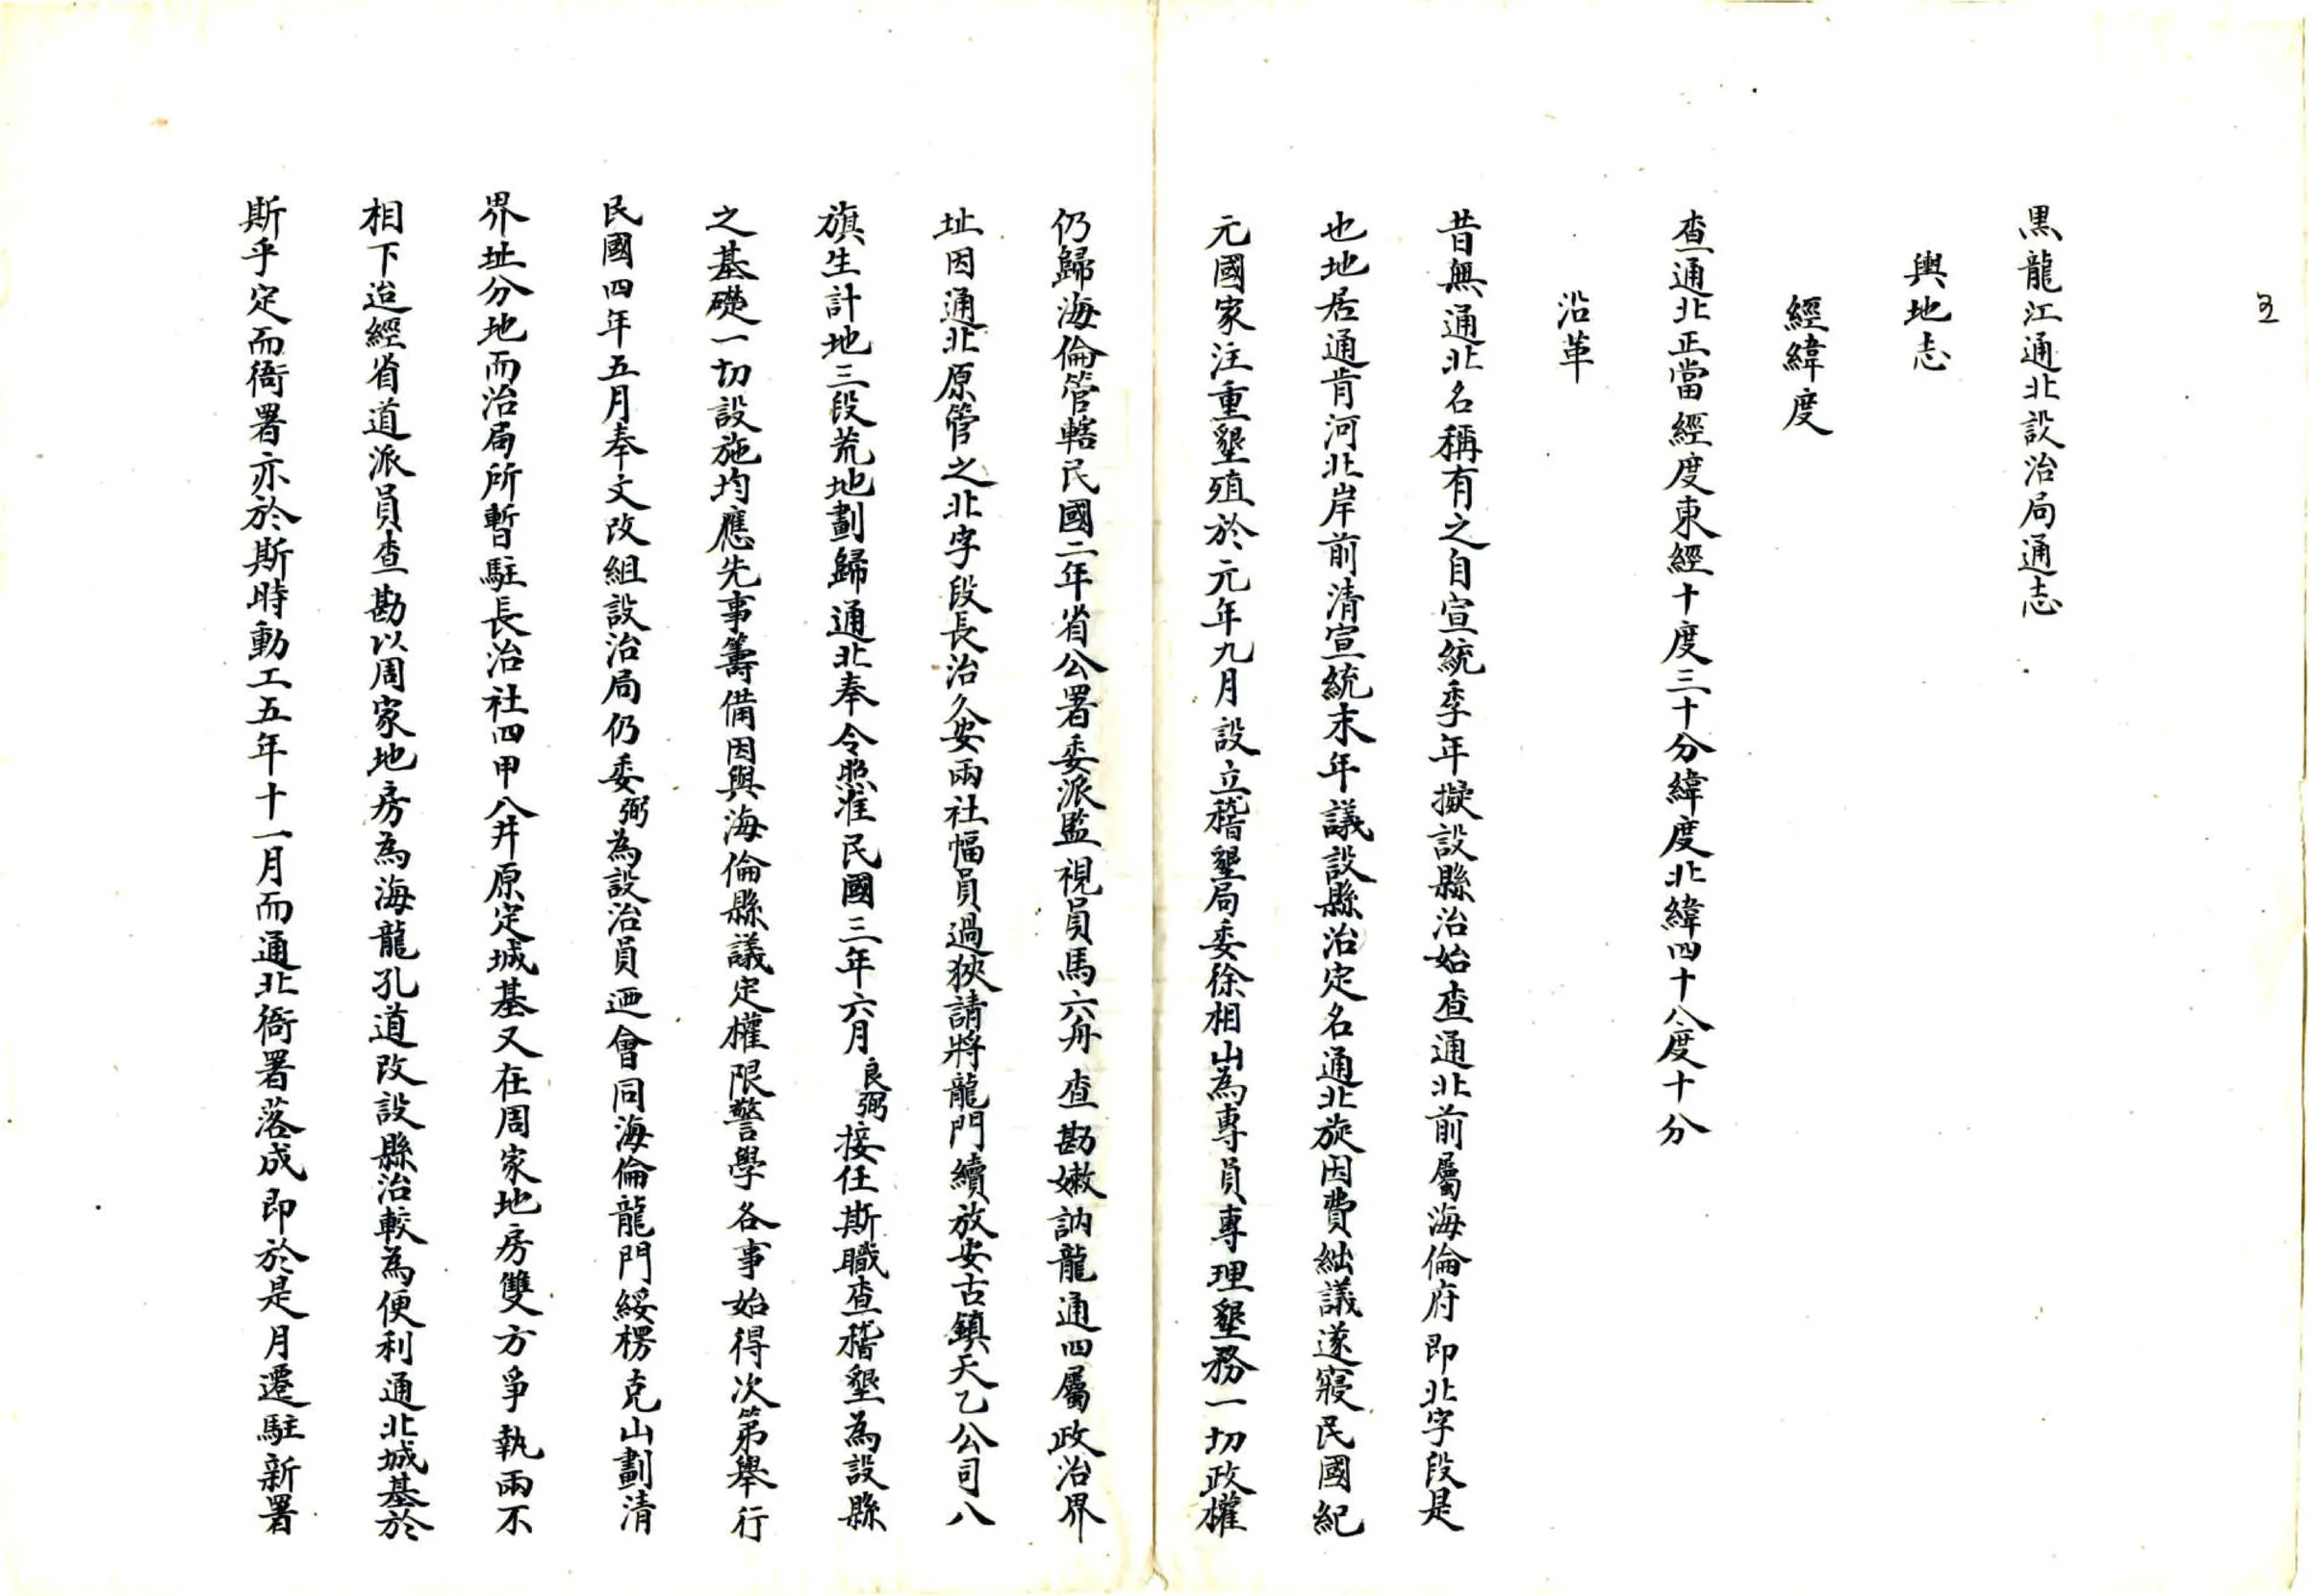 黑龍江通北設治局通志
輿地志
經緯度
查通北正當經度東經十度三十分緯度北緯四十八度十分
沿革
昔無通北名稱有之自宣統季年擬設縣治始查通北前屬海倫府即北字段是
也地居通肯河北岸前清宣統末年議設縣治定名通北旋因費絀議遂寢民國紀
元國家注重墾殖於元年九月設立稽墾局委徐相山為專員專理墾務一切政權
仍歸海倫管轄民國二年省公署委派監視員馬六舟查勘嫩訥龍通四屬政治界
址因通北原管之北字段長治久安兩社幅員過狹請將龍門續放安古鎮天乙公司八
旗生計地三段荒地劃歸通北奉令照准民國三年六月良弼接任斯職查稽墾為設縣
之基礎一切設施均應先事籌備因與海倫縣議定權限警學各事始得次第舉行
民國四年五月奉文改組設治局仍委弼為設治員迺會同海倫龍門綏楞克山劃清
界址分地而治局所暫駐長治社四甲八井原定城基又在周家地房雙方爭執兩不
相下迨經省道派員查勘以周家地房為海龍孔道改設縣治較為便利通北城基於
斯乎定而衙署亦於斯時動工五年十一月而通北衙署落成即於是月遷駐新署